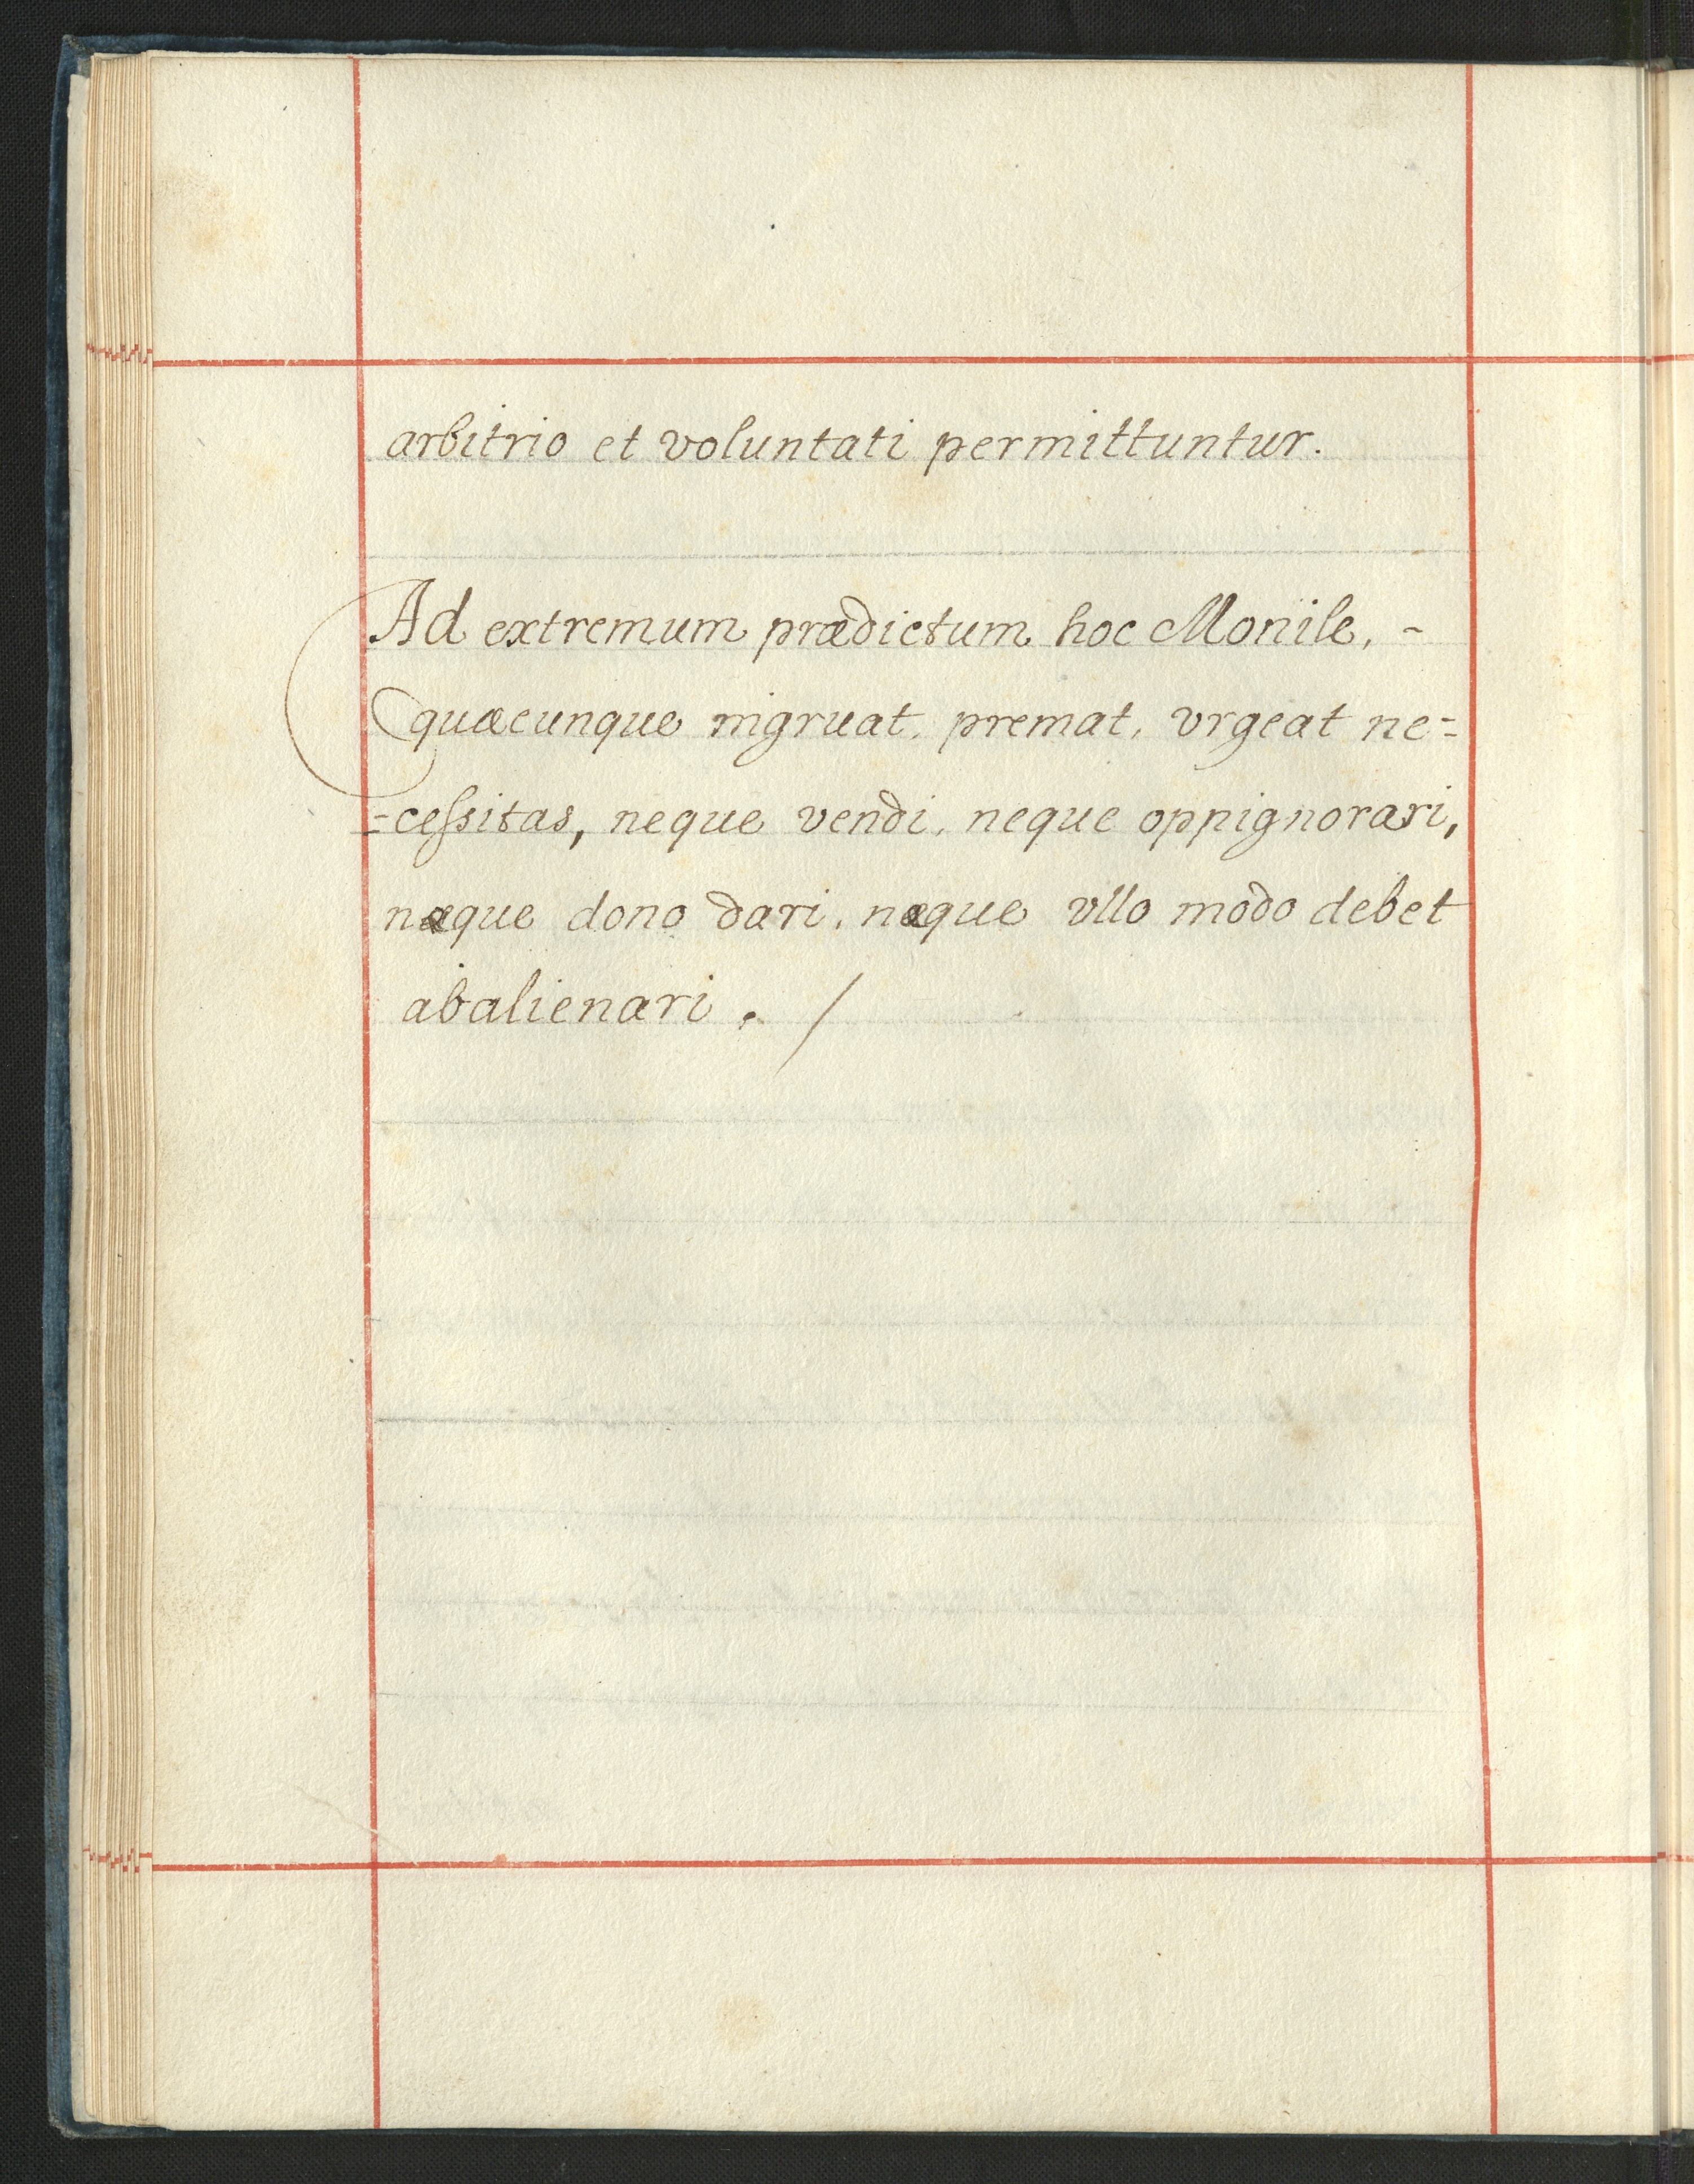 arbitrio et voluntati permittuntur.
Ad extremum prædictum hoc Monile, -
quæcunque ingruat, premat, vrgeat ne=
=ceſsitas, neque vendi, neque oppignorari,
neque dono dari, neque vllo modo debet
abalienari. /